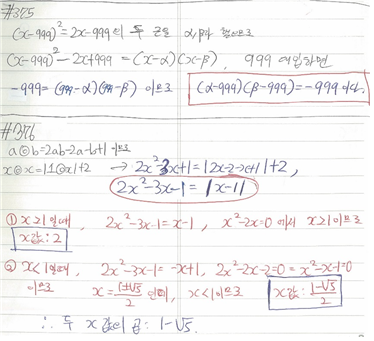 #375
(x-999)²=2x-999의 두 근은 α,β라 했으므로
(x-999)²-2x+999=(x-α)(x-β), 999 대입하면
-999=(999-α)(999-β) 이므로 (α-999)(β-999)=-999 이다.
#376
a◎b=2ab-2a-b+1 이므로
x◎x=|1◎x|+2 → 2x²-3x+1=|2x-2-x+1|+2,
2x²-3x-1=|x-1|
① x≥1일때, 2x²-3x-1=x-1, x²-2x=0 에서 x≥1이므로
x값: 2
② x<1일때, 2x²-3x-1=-x+1, 2x²-2x-2=0=x²-x-1=0
이므로 x=(1±√5)/2 인데, x<1이므로 x값: (1-√5)/2
∴ 두 x값의 곱: 1-√5.